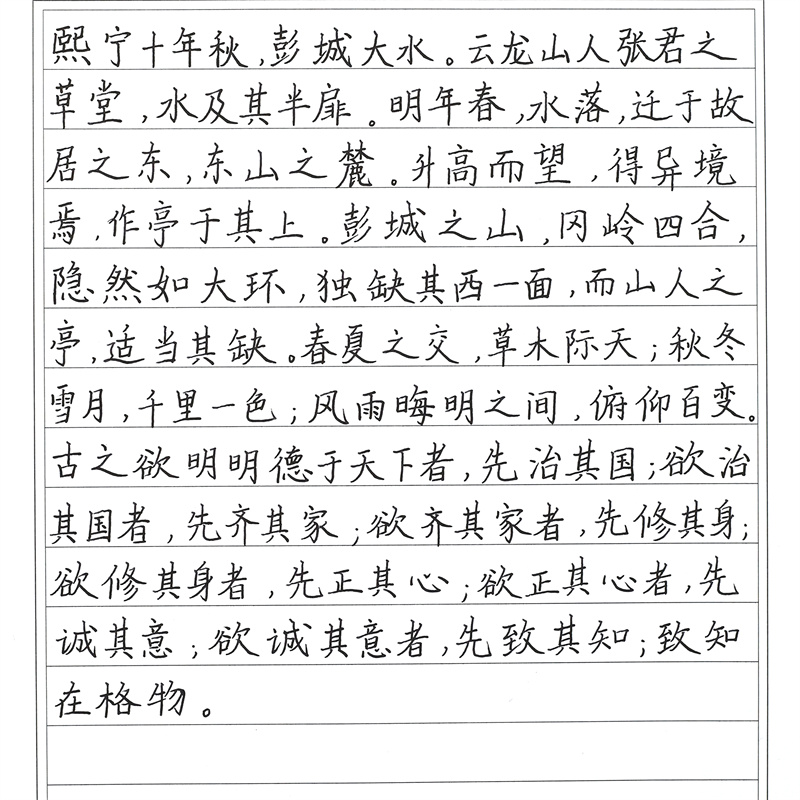 熙宁十年秋,彭城大水。云龙山人张君之
草堂,水及其半扉。明年春,水落,迁于故
居之东,东山之麓。升高而望,得异境
焉,作亭于其上。彭城之山,冈岭四合,
隐然如大环,独缺其西一面,而山人之
亭,适当其缺。春夏之交,草木际天;秋冬
雪月,千里一色;风雨晦明之间,俯仰百变。
古之欲明明德于天下者,先治其国;欲治
其国者,先齐其家;欲齐其家者,先修其身;
欲修其身者,先正其心;欲正其心者,先
诚其意;欲诚其意者,先致其知;致知
在格物。